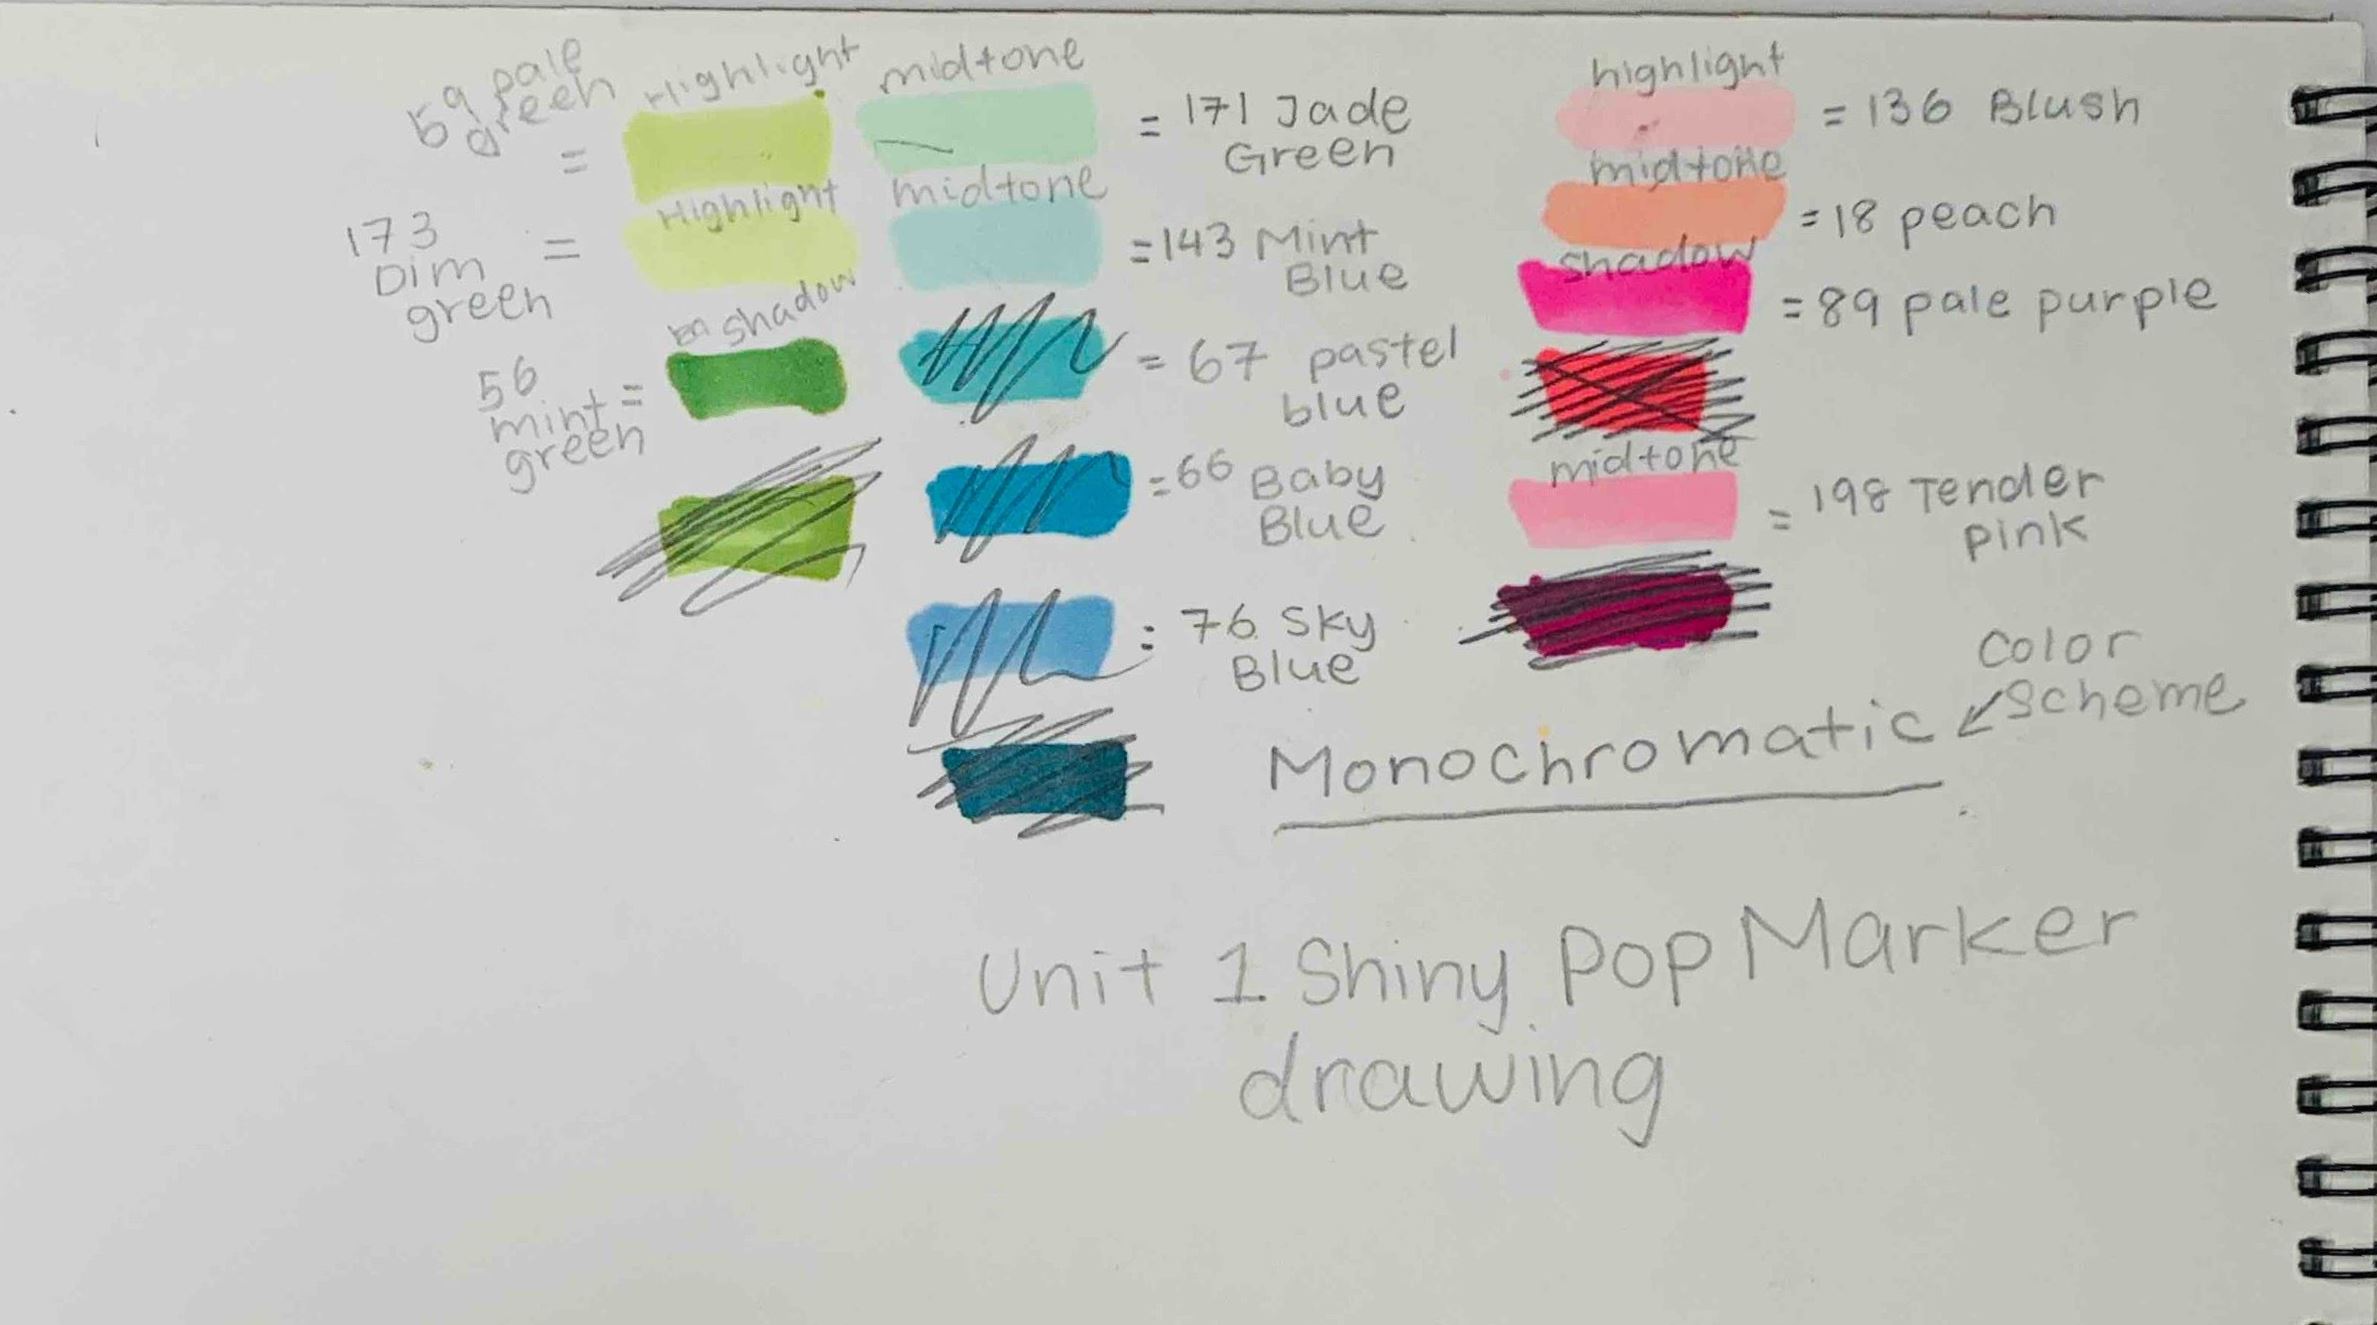 59 pale
green
=
Highlight
173
Dim
green
=
Highlight
56
mint =
green
shadow
midtone
= 171 Jade
Green
midtone
=143 Mint
Blue
= 67 pastel
blue
=66 Baby
Blue
= 76 Sky
Blue
highlight
= 136 Blush
midtone
=18 peach
shadow
=89 pale purple
midtone
= 198 Tender
pink
Color
Scheme
Monochromatic
Unit 1 Shiny Pop Marker
drawing